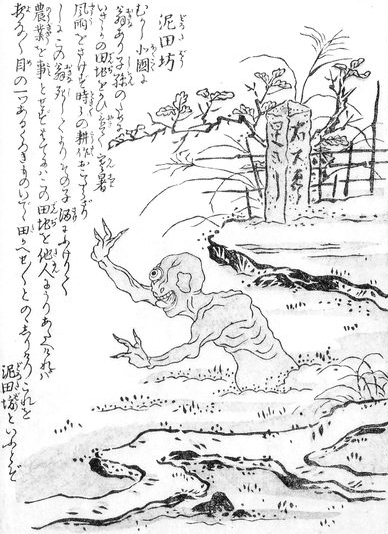 泥田坊
むかし北国に
翁あり子孫のために
いさゝかの田地をかひ置て寒暑
風雨をさけず時々の耕作おこたらざり
しにこの翁死してよりその子酒にふけりて
農業を事とせずはてにはこの田地を他人にうりあたへければ
夜な〳〵目の一つあるくろきものいでて田かへせ〳〵とのゝしりけりこれを
泥田坊といふとぞ